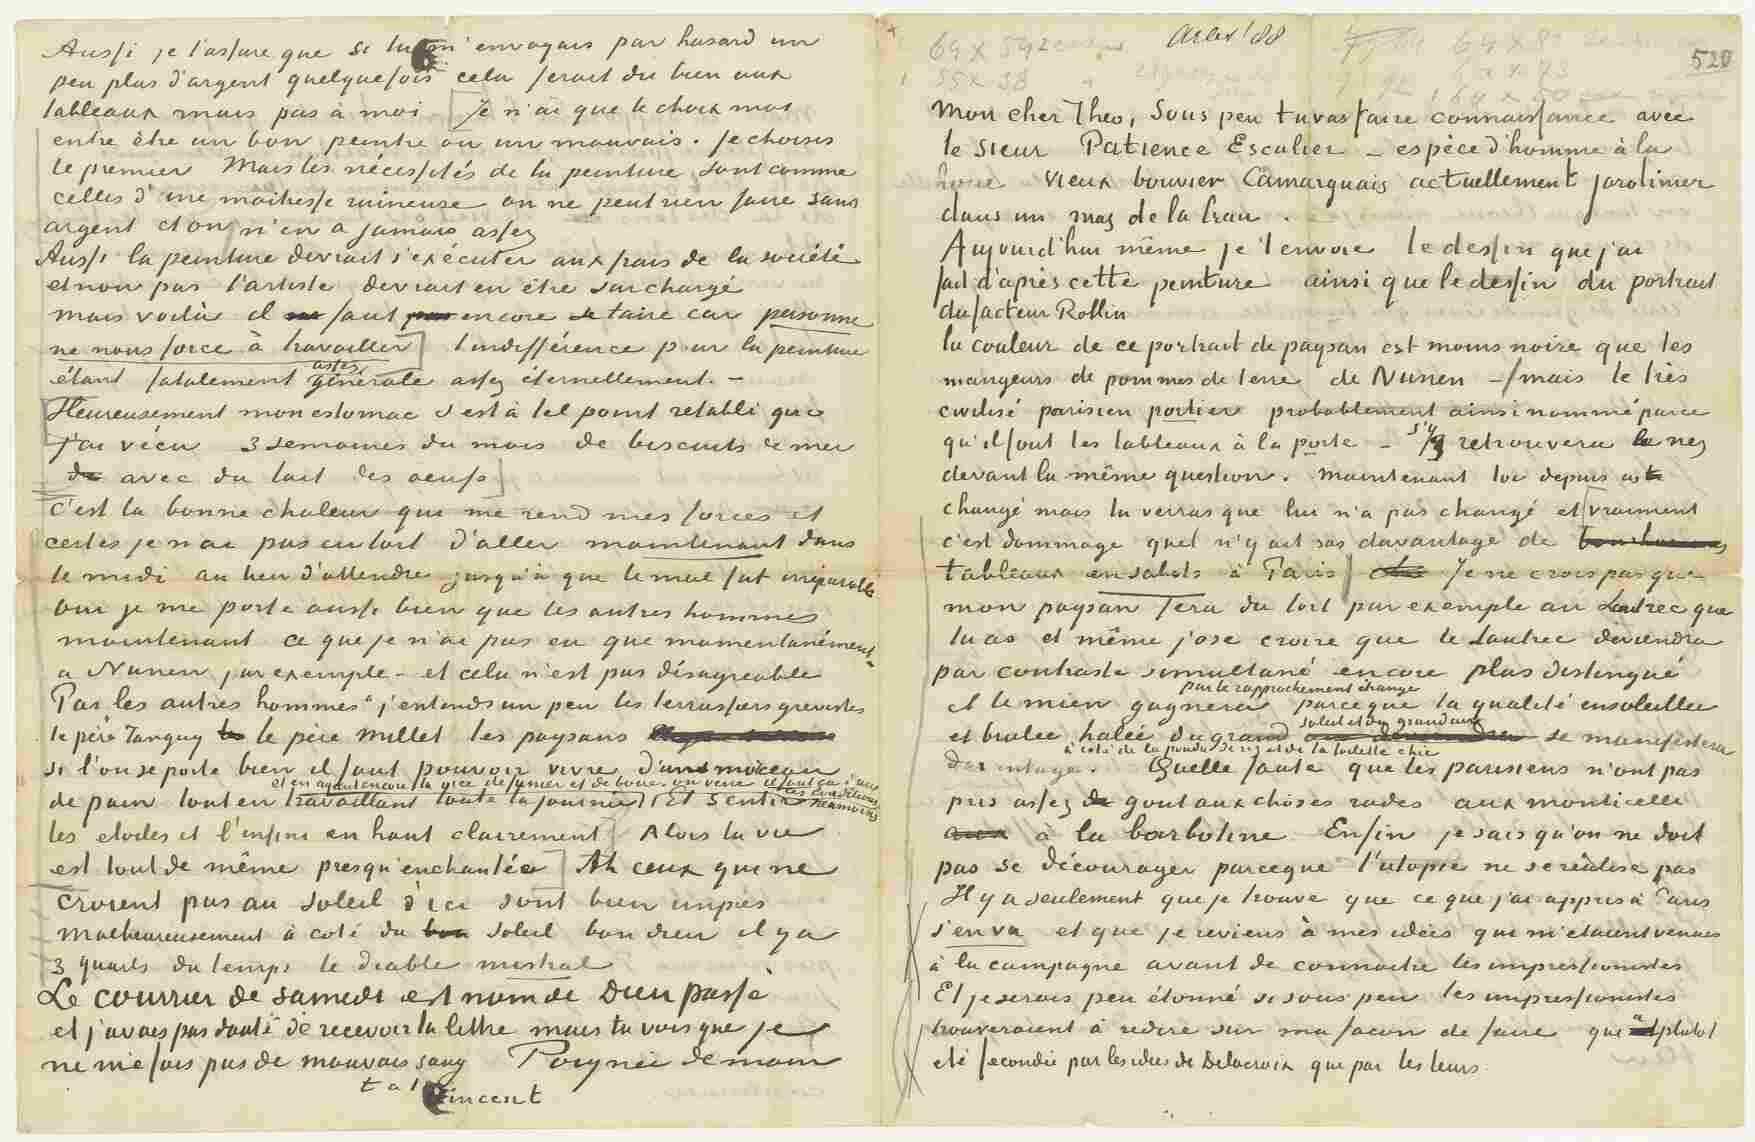 Aussi je t'assure que si tu m'envoyais par hasard un
peu plus d'argent quelquefois cela ferait du bien aux
tableaux mais pas à moi Je n'ai que le choix moi
entre être un bon peintre ou un mauvais. Je choisis
le premier Mais les nécessités de la peinture sont comme
celles d'une maitresse ruineuse on ne peut rien faire sans
argent et on n'en a jamais assez
Aussi la peinture devrait s'exécuter aux frais de la société
et non pas l'artiste devrait en être surchargé
mais voilà il faut encore se taire car personne
ne nous force à travailler l'indifférence pour la peinture
étant fatalement assez générale assez éternellement. –
Heureusement mon estomac s'est à tel point retabli que
j'ai vécu 3 semaines du mois de biscuits de mer
avec du lait des oeufs
c'est la bonne chaleur qui me rend mes forces et
certes je n'ai pas eu tort d'aller maintenant dans
le midi au lieu d'attendre jusqu'à que le mal fut irréparable
oui je me porte aussi bien que les autres hommes
maintenant ce que je n'ai pas eu que momentanément
a Nunen par exemple – et cela n'est pas désagreable
Par les autres hommes j'entends un peu les terrassiers grevistes
le père Tanguy le père Millet les paysans
si l'on se porte bien il faut pouvoir vivre d'un morceau
de pain tout en travaillant toute la journée
et en ayant encore la force de fumer et de boire. on verre il faut ça dans
ces conditions
Et sentir néanmoins
les etoiles et l'infini en haut clairement Alors la vie
est tout de même presqu'enchantée Ah ceux qui ne
croient pas au soleil d'ici sont bien impies
Malheureusement à coté du soleil bon dieu il y a
3 quarts du temps le diable mistral
Le courrier de samedi est nom de Dieu passé
et j'avais pas douté de recevoir ta lettre mais tu vois que je
ne me fais pas de mauvais sang Poignée de main
t. à t.
Vincent
Arles '88
64 x 54
55 x 38
520
Mon cher Theo, Sous peu tu vas faire connaissance avec
le sieur Patience Escalier – espèce d'homme à la
houe vieux bouvier Camarguais actuellement jardinier
dans un mas de la Crau.
Aujourd'hui même je t'envoie le dessin que j'ai
fait d'après cette peinture ainsi que le dessin du portrait
du facteur Rollin
la couleur de ce portrait de paysan est moins noire que les
mangeurs de pommes de terre de Nunen – mais le très
civilisé parisien portier probablement ainsi nommé parce
qu'il fout les tableaux à la porte – s'y retrouvera le nez
devant la même question. Maintenant toi depuis as
changé mais tu verras que lui n'a pas changé et vraiment
c'est dommage quel n'y ait pas davantage de
tableaux en sabots à Paris Je ne crois pas que
mon paysan fera du tort par exemple au Lautrec que
tu as et même j'ose croire que le Lautrec deviendra
par contraste simultané encore plus distingué
et le mien gagnera par le rapprochement étrange parceque la qualité ensoleillée
et brulée halée du grand soleil et du grand air se manifestera
davantage. à coté de la poudre de riz et de la toilette chic
Quelle faute que les parisiens n'ont pas
pris assez gout aux choses rudes aux monticelli
à la barbotine Enfin je sais qu'on ne doit
pas se décourager parceque l'utopie ne se réalise pas
Il y a seulement que je trouve que ce que j'ai appris à Paris
s'en va et que je reviens à mes idées qui m'etaient venues
à la campagne avant de connaitre les impressionistes
Et je serais peu étonné si sous peu les impressionistes
trouveraient à redire sur ma facon de faire qui a plutot
eté fecondée par les idées de Delacroix que par les leurs.